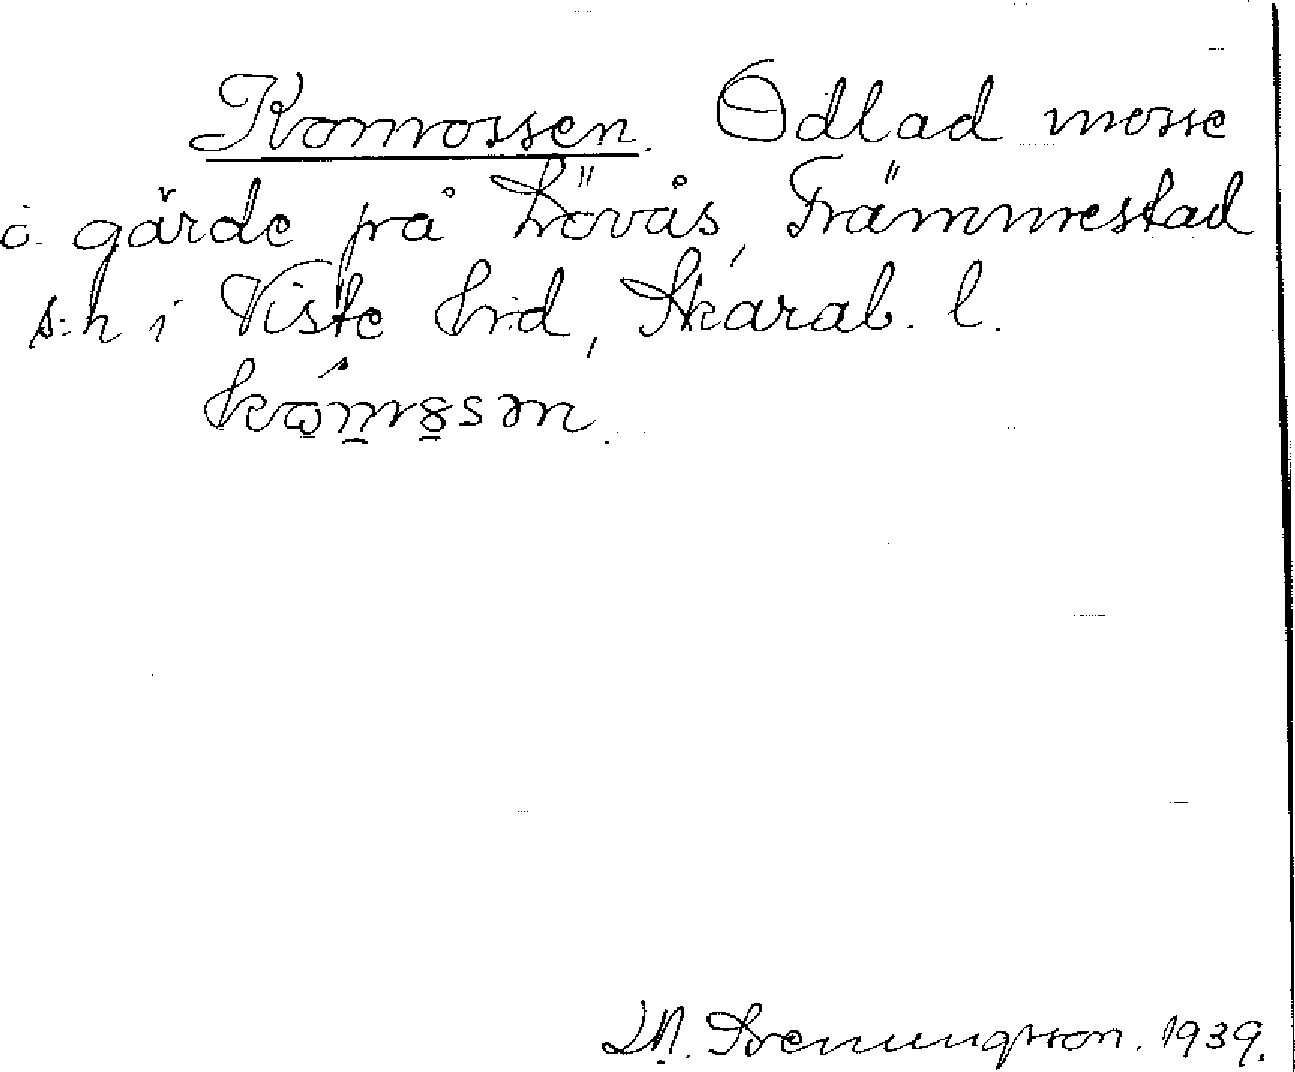 Komossen. Odlad mosse
o. gärde på Lövås, Främmestad
s:n i Viste hrd, Skarab. l.
D.N. Svenungsson. 1939.